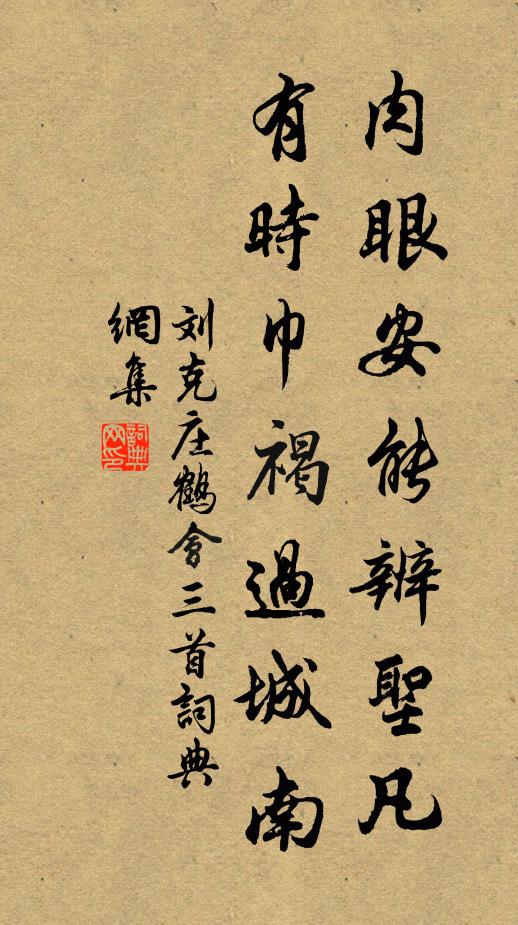 肉眼安能辨聖凡
有時巾褐過城南
刘克庄鶴會三首詞典
網集
詞典
网印